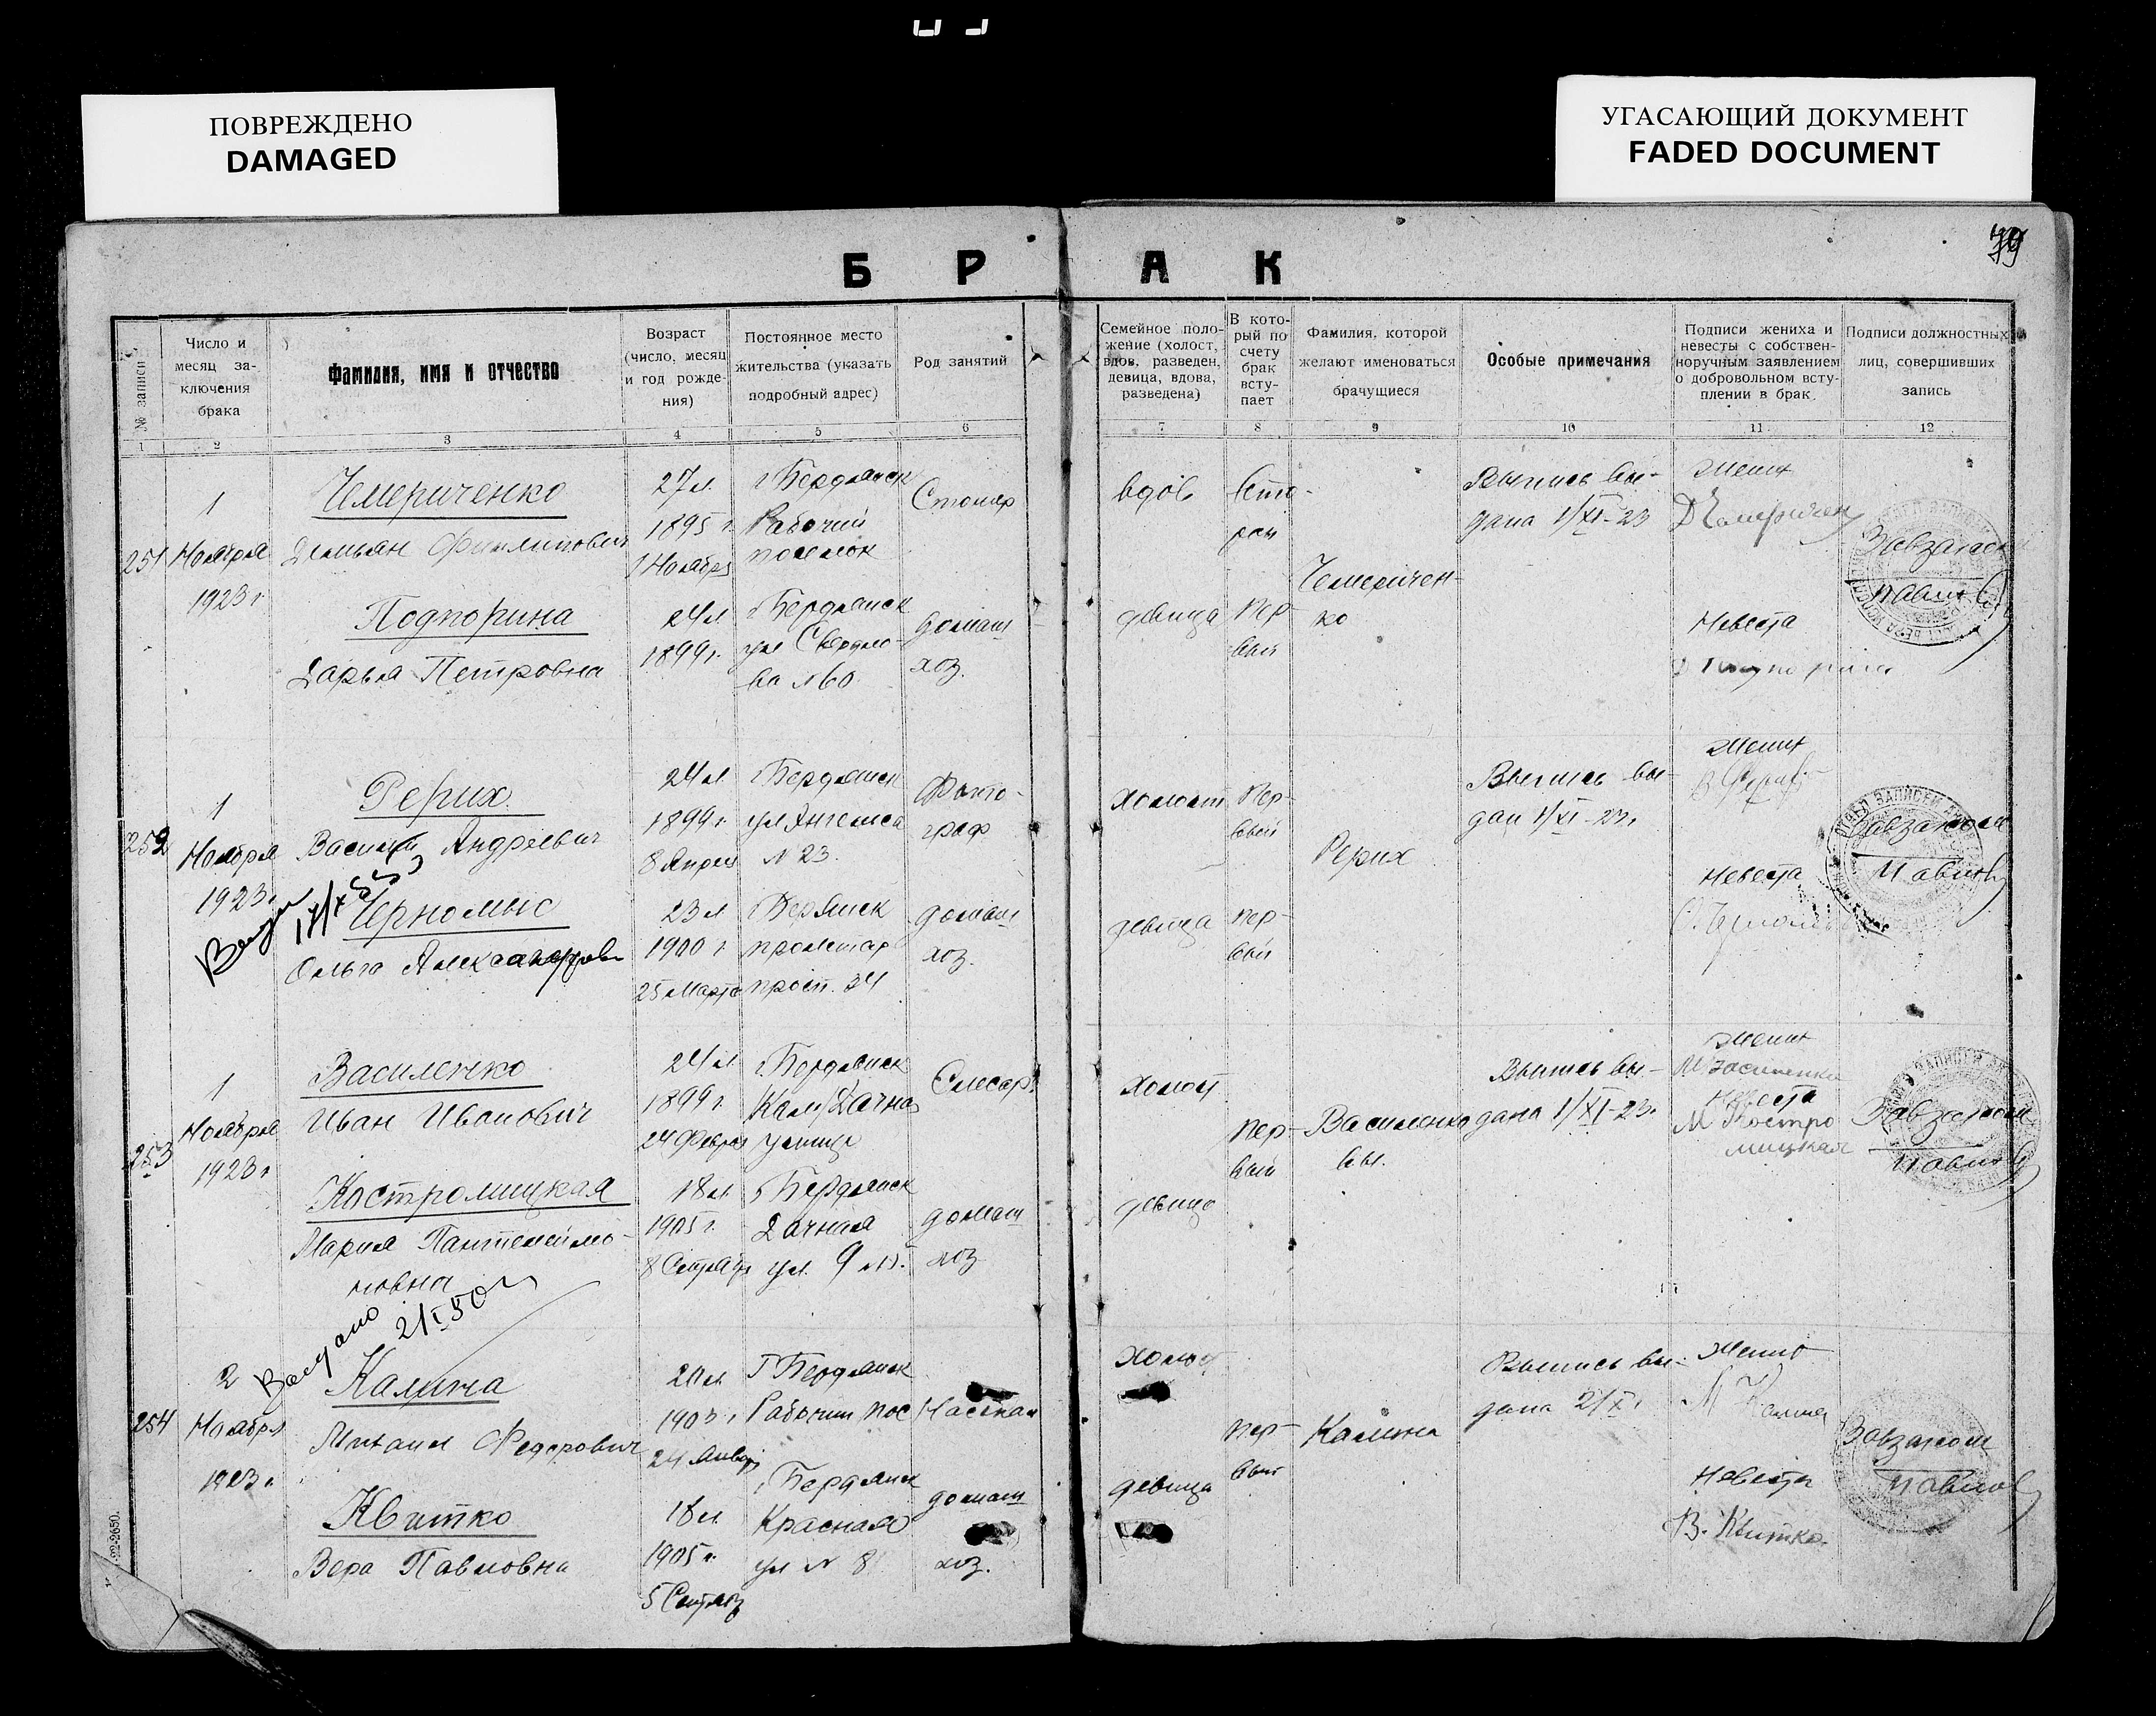 ПОВРЕЖДЕНО
DAMAGED
УГАСАЮЩИЙ ДОКУМЕНТ
FADED DOCUMENT
79
БРАК
№ записи
Число и
месяц за-
ключения
брака
Фамилия, имя и отчество
Возраст
(число, месяц
и год рожде-
ния)
Постоянное место
жительства (указать
подробный адрес)
Род занятий
Семейное поло-
жение (холост,
вдов, разведен,
девица, вдова,
разведена)
В кото-
рый по
счету
брак
всту-
пает
Фамилия, которой
желают именоваться
брачущиеся
Особые примечания
Подписи жениха и
невесты с собствен-
норучным заявлением
о добровольном всту-
плении в брак.
Подписи должностных
лиц, совершивших
запись
1 2 3 4 5 6 7 8 9 10 11 12
251
1
Ноября
1923 г.
Чемериченко
Демьян Филиппович
27 л.
1895 г.
1 Ноября
г Бердянск
Рабочий
поселок
Столяр
вдов
Вто-
рой
Чемеричен-
ко
Выпись вы-
дана 1/XI-23
Жених
Завзагсом
Павлов
Подпорина
Дарья Петровна
24 л
1899 г.
г Бердянск
ул Свердло-
ва №60
домаш
хоз.
девица
Пер-
вый
Невеста
252
1
Ноября
1923 г.
Рерих
Василий Андреевич
24 л
1899 г.
8 Апреля
г Бердянск
ул Энгельса
N 23.
Фото-
граф
холост
Пер-
вый
Рерих
Выпись вы-
дан 1/XI-23 г.
Жених
Завзагсом
Павлов
Черномыс
Ольга Александровн
23 л
1900 г
25 Марта
г Бердянск
пролетар
просп. 34
домаш
хоз.
девица
пер-
вый
Невеста
253
1
Ноября
1923 г
Василенко
Иван Иванович
24 л
1899 г.
24 Февраля
г Бердянск
улица
Слесарь
холост
Пер-
вый
Василенко
вы.
Выпись вы-
дана 1/XI-23 г.
Жених
Невеста
М Костро
мицкая
Завзагсом
Павлов
Костромицкая
Мария Пантелеймо-
новна
18 л.
1905 г.
8 Сентября
г Бердянск
Дачная
ул. 9
домаш
хоз
девица
Выдано
2/I 50 г
254
2
Ноября
1923 г.
Калина
Михаил Федорович
20 л.
1903 г.
24 Январ
Г Бердянск
Рабочий пос
холост
Пер-
вый
Калина
Выпись вы-
дана 2/XI
Жених
М Калина
Завзагсом
Павлов
Квитко
Вера Павловна
18 л.
1905 г.
5 Сентяб
г Бердянск
Красная
ул N 8
домаш
хоз.
девица
Невеста
В. Квитко.
22-2650.